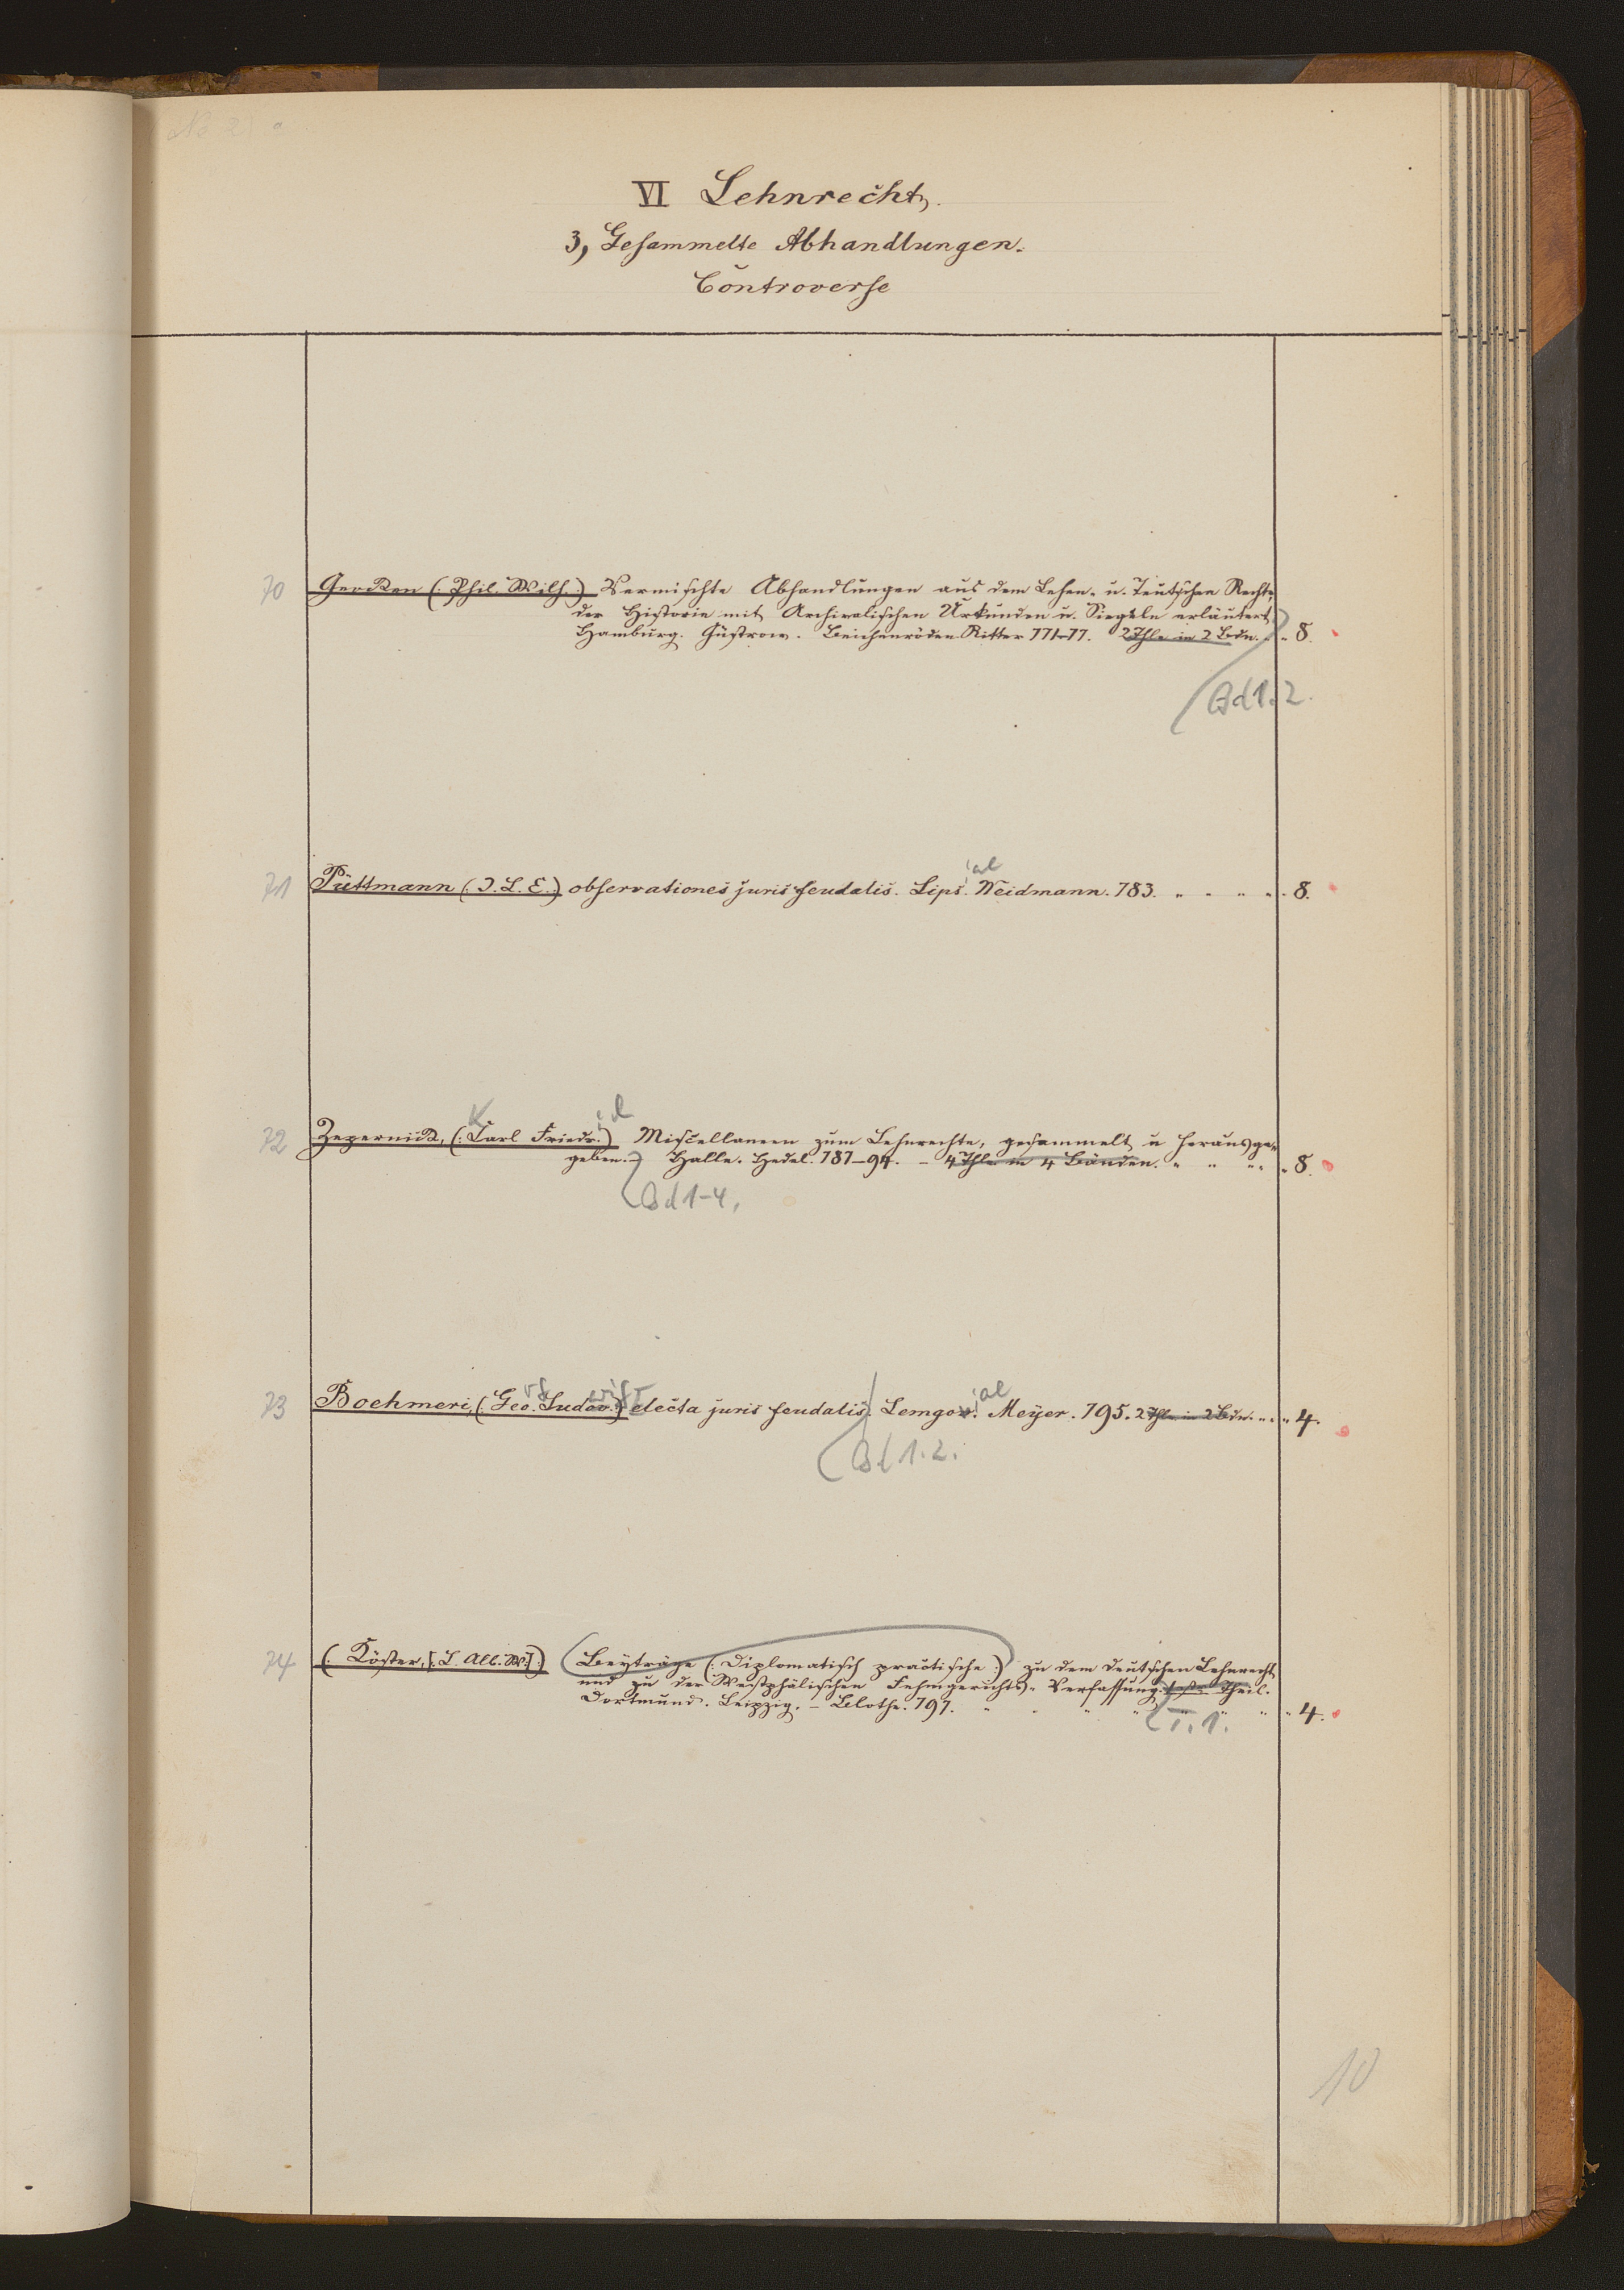 VI Lehnrecht.
3, Gesammelte Abhandlungen.
Controverse
70 Gercken (: Phil. Wilh. :) Vermischte Abhandlungen aus dem Lehen- u. Teutschen Rechte,
der Historie mit Archivalischen Urkunden u. Siegeln erläutert
Hamburg. Güstrow. Ritter 771-77. 2 Thle in 2 Bdn. „ 8.
Bd 1. 2.
ial
71 Püttmann (: J. L. E. :) observationes juris feudalis. Lips. Weidmann. 783. „ „ „ „ „ 8.
K
72 Zepernick, (: Carl Friedr. :) Miscellaneen zum Lehnrechte, gesammelt u herausge-
geben. - Halle. Hedel. 787-94. - 4 Thle in 4 Bänden. „ „ „ „ „ 8.
Bd 1-4.
ial
73 Boehmeri, (: Geo. Ludov. :) electa juris feudalis. Lemgov. Meyer. 795. 2 Thle in 2 Bdn. „ „ „ 4.
Bd 1. 2.
74 (: Köster, [: L. Alb. W. :] :) Beyträge (: Diplomatisch practische :) zu dem Deutschen Lehnrecht
und zu der Westphälischen Fehmgerichts- Verfassung. 1ster Theil.
Dortmund. Leipzig. - Blothe. 797. „ „ „ „ „ „ „ „ 4.
T. 1.
10